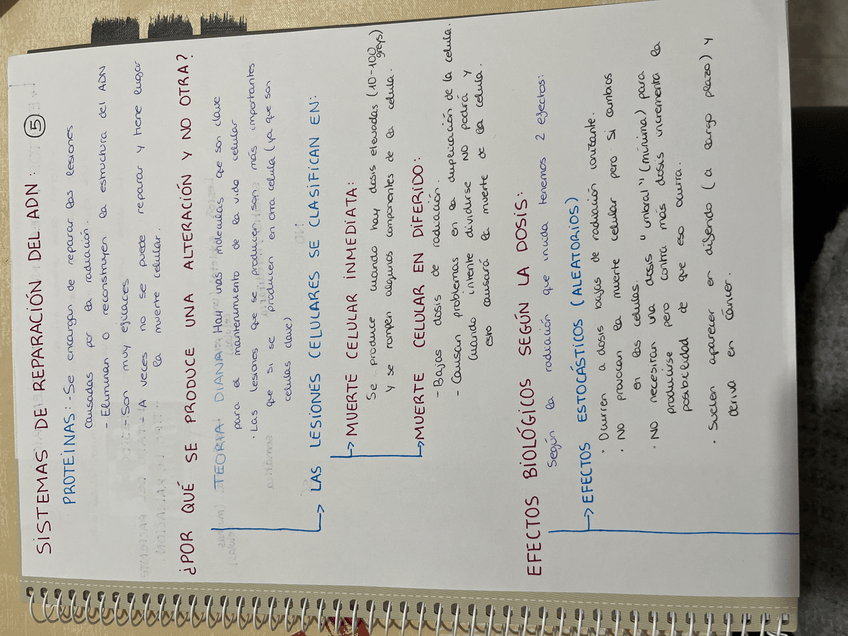 SISTEMAS DE REPARACIÓN DEL ADN: 5
PROTEÍNAS: - Se encargan de reparar las lesiones
causadas por la radiación.
- Eliminan o reconstruyen la estructura del ADN
- Son muy eficaces
A veces no se puede reparar y tiene lugar
la muerte celular.
¿POR QUÉ SE PRODUCE UNA ALTERACIÓN Y NO OTRA?
TEORIA DIANA: Hay unas moléculas que son clave
para el mantenimiento de la vida celular
· Las lesiones que se producen son más importantes
que si se producen en otra célula (ya que son
células clave)
LAS LESIONES CELULARES SE CLASIFICAN EN:
MUERTE CELULAR INMEDIATA:
Se produce cuando hay dosis elevadas (10-100 greys)
y se rompen algunos componentes de la célula.
MUERTE CELULAR EN DIFERIDO:
- Bajas dosis de radiación.
- Causan problemas en la duplicación de la célula.
Cuando intente dividirse NO podrá y
esto causará la muerte de la célula.
EFECTOS BIOLÓGICOS SEGÚN LA DOSIS:
Según la radiación que incida tenemos 2 efectos:
EFECTOS ESTOCÁSTICOS (ALEATORIOS)
· Ocurren a dosis bajas de radiación ionizante.
· NO provocan la muerte celular pero sí cambios
en las células.
· NO necesitan una dosis "umbral" (mínima) para
producirse pero contra más dosis incrementa la
posibilidad de que eso ocurra.
· Suelen aparecer en diferido (a largo plazo) y
deriva en cáncer.